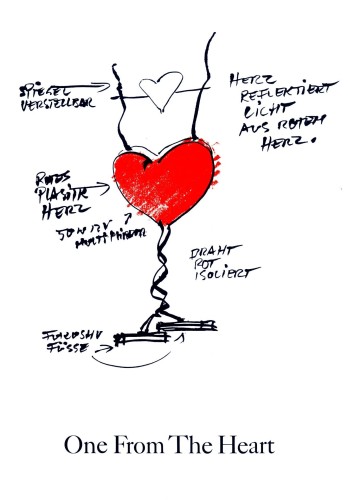 SPIEGEL
VERSTELLBAR
HERZ
REFLEKTIERT
LICHT
AUS ROTEM
HERZ.
ROTES
PLASTIK
HERZ
50W 12V
MULTIMIRROR
DRAHT
ROT
ISOLIERT
FÜSSE
One From The Heart